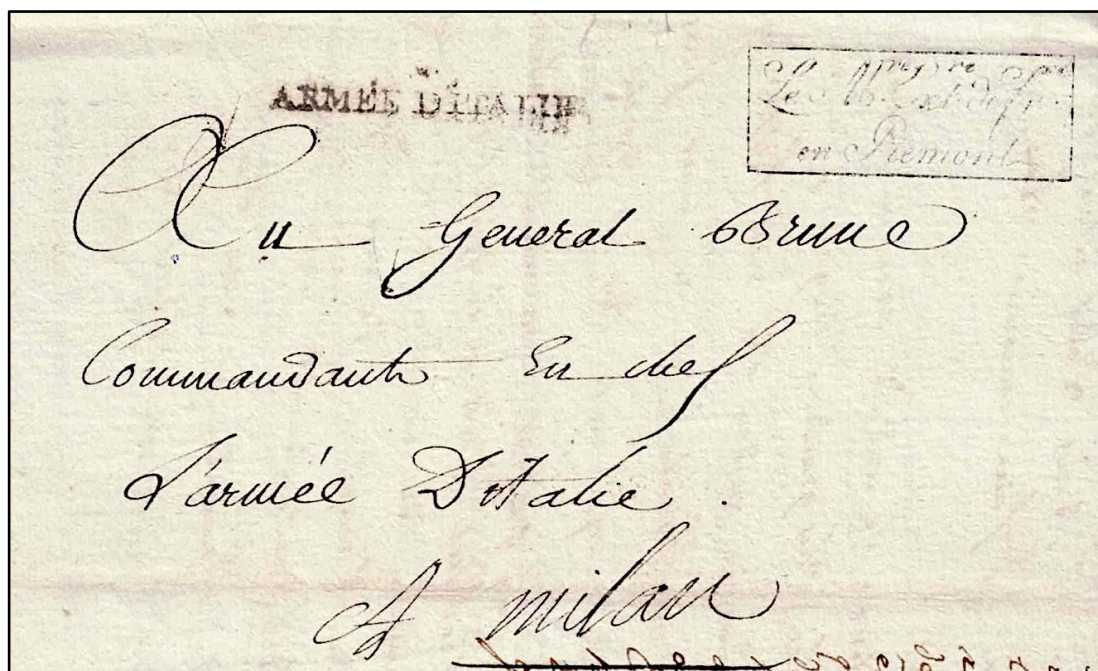 ARMÉE D'ITALIE
Le
en Piemont
Au General Brune
Commandant En chef
L'armée D'Italie.
A milan